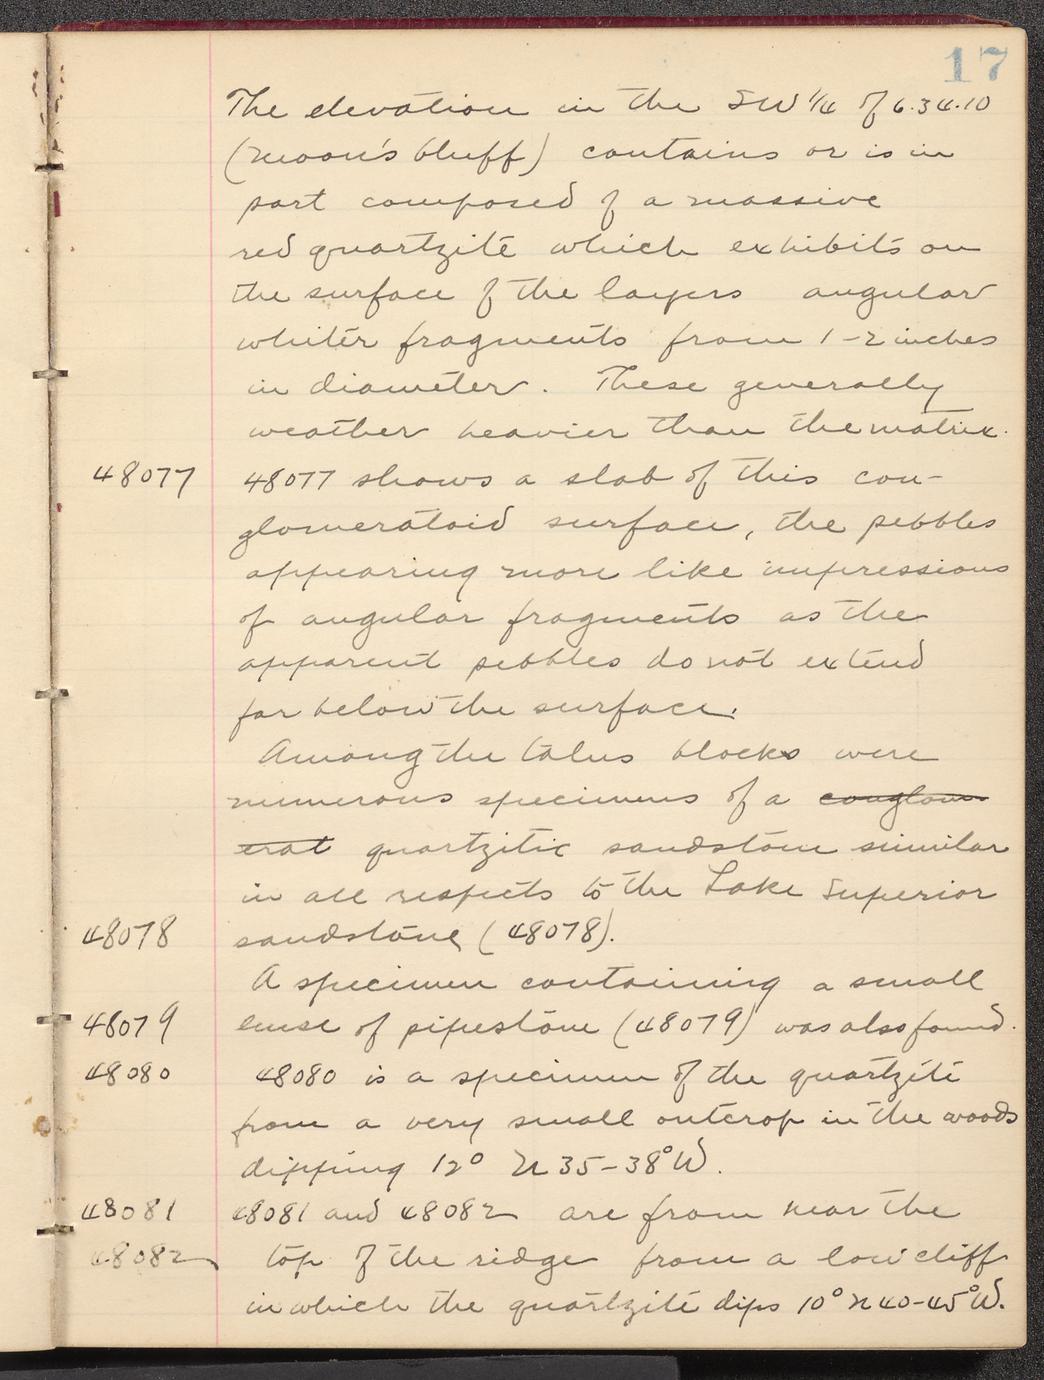 17
The elevation in the SW 1/4 of 6.34.10
(Moon's bluff) contains or is in
part composed of a massive
red quartzite which exhibits on
the surface of the layers angular
whiter fragments from 1-2 inches
in diameter. These generally
weather heavier than the matrix.
48077 48077 shows a slab of this con-
glomeratoid surface, the pebbles
appearing more like impressions
of angular fragments as the
apparent pebbles do not extend
far below the surface.
Among the talus blocks were
numerous specimens of a conglom-
erat quartzitic sandstone similar
in all respects to the Lake Superior
48078 sandstone (48078).
A specimen containing a small
48079 lense of pipestone (48079) was also found.
48080 48080 is a specimen of the quartzite
from a very small outcrop in the woods
dipping 12° N 35-38° W.
48081 48081 and 48082 are from near the
48082 top of the ridge from a low cliff
in which the quartzite dips 10° N 40-45° W.